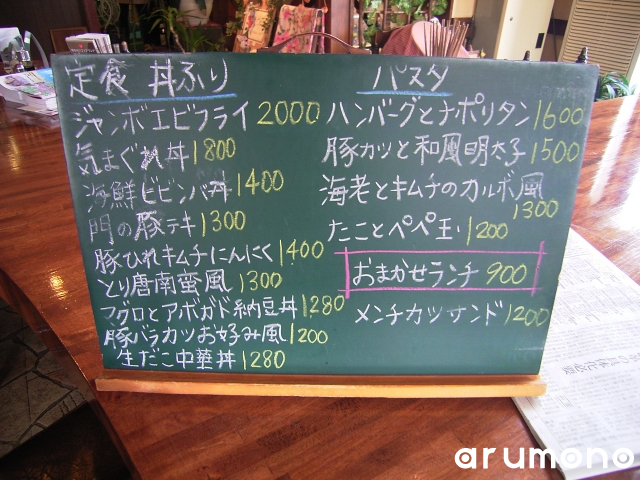 定食 丼ぶり
ジャンボエビフライ 2000
気まぐれ丼 1800
海鮮ビビンバ丼 1400
門の豚テキ 1300
豚ひれキムチにんにく 1400
とり唐南蛮風 1300
マグロとアボガド納豆丼 1280
豚バラカツお好み風 1200
生だこ中華丼 1280
パスタ
ハンバーグとナポリタン 1600
豚カツと和風明太子 1500
海老とキムチのカルボ風
1300
たことペペ玉 1200
おまかせランチ 900
メンチカツサンド 1200
arumono